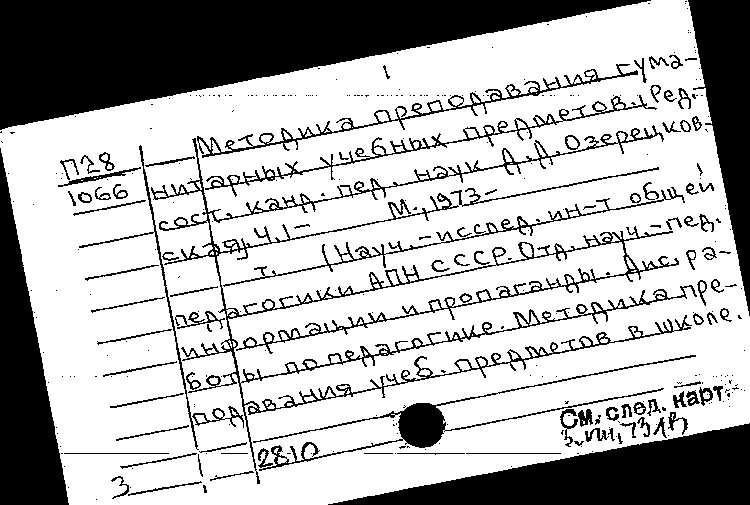 1
Методика преподавания гума-
П28 нитарных учебных предметов. Ред.-
1066 сост. канд. пед. наук Д.Д.Озерецков-
ская. Ч.1- М., 1973-
т. (Науч.-исслед. ин-т общей
педагогики АПН СССР. Отд. науч.-пед.
информации и пропаганды. Дис. ра-
боты по педагогике. Методика пре-
подавания учеб. предметов в школе.
См. след. карт.
2810
3